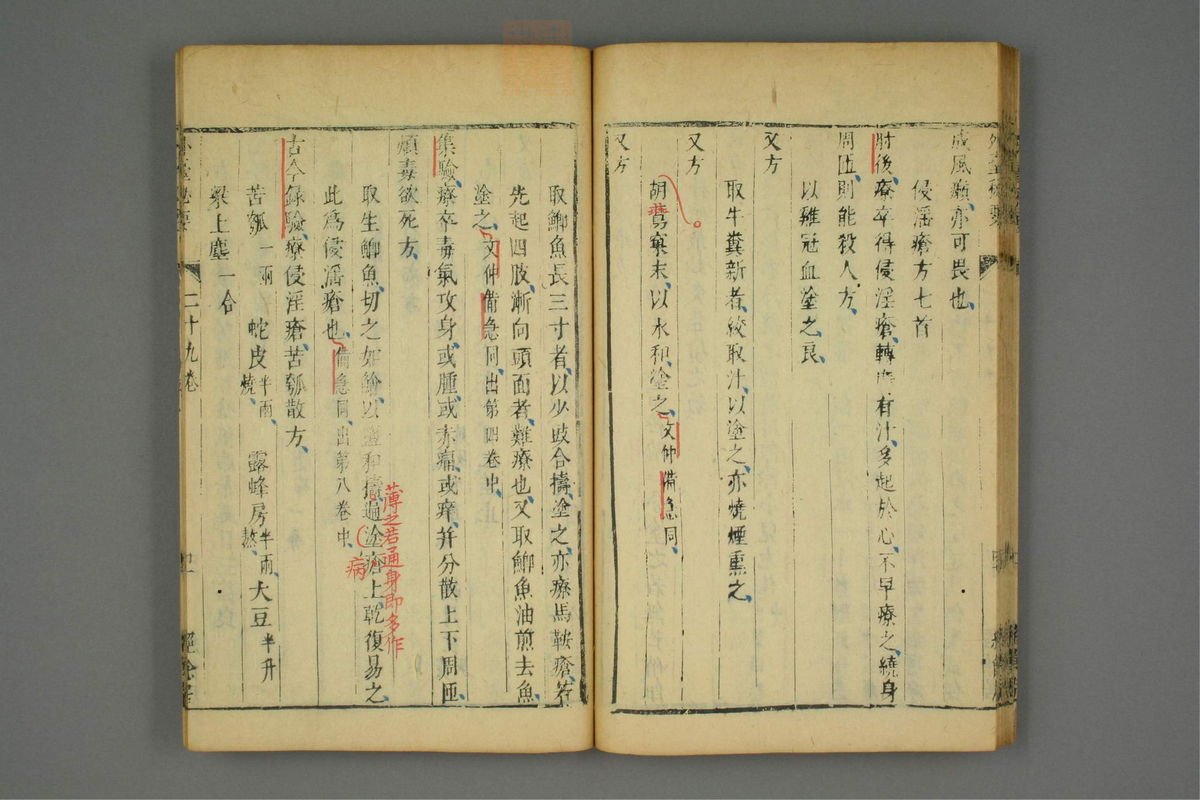 成風癩亦可畏也
侵淫瘡方七首
肘後療卒得侵淫瘡轉 有汁多起於心不早療之繞身
周匝則能殺人方
以雞冠血塗之良
又方
取牛糞新者絞取汁以塗之亦燒煙熏之
又方
胡鷰窠末以水和塗之文仲備急同
又方
取鯽魚長三寸者以少豉合擣塗之亦療馬鞍瘡若
先起四肢漸向頭面者難療也又取鯽魚油煎去魚
塗之文仲備急同出第四卷中
集驗療卒毒氣攻身或腫或赤痛或痒并分散上下周匝
煩毒欲死方
取生鯽魚切之如鱠以鹽和擣過塗瘡上乾復易之
薄之若通身即多作
病
此為侵淫瘡也備急同出第八卷中
古今錄驗療侵淫瘡苦瓠散方
苦瓠一兩 蛇皮半兩燒 露蜂房半兩熬 大豆半升
梁上塵一合
外臺秘要 二十九卷